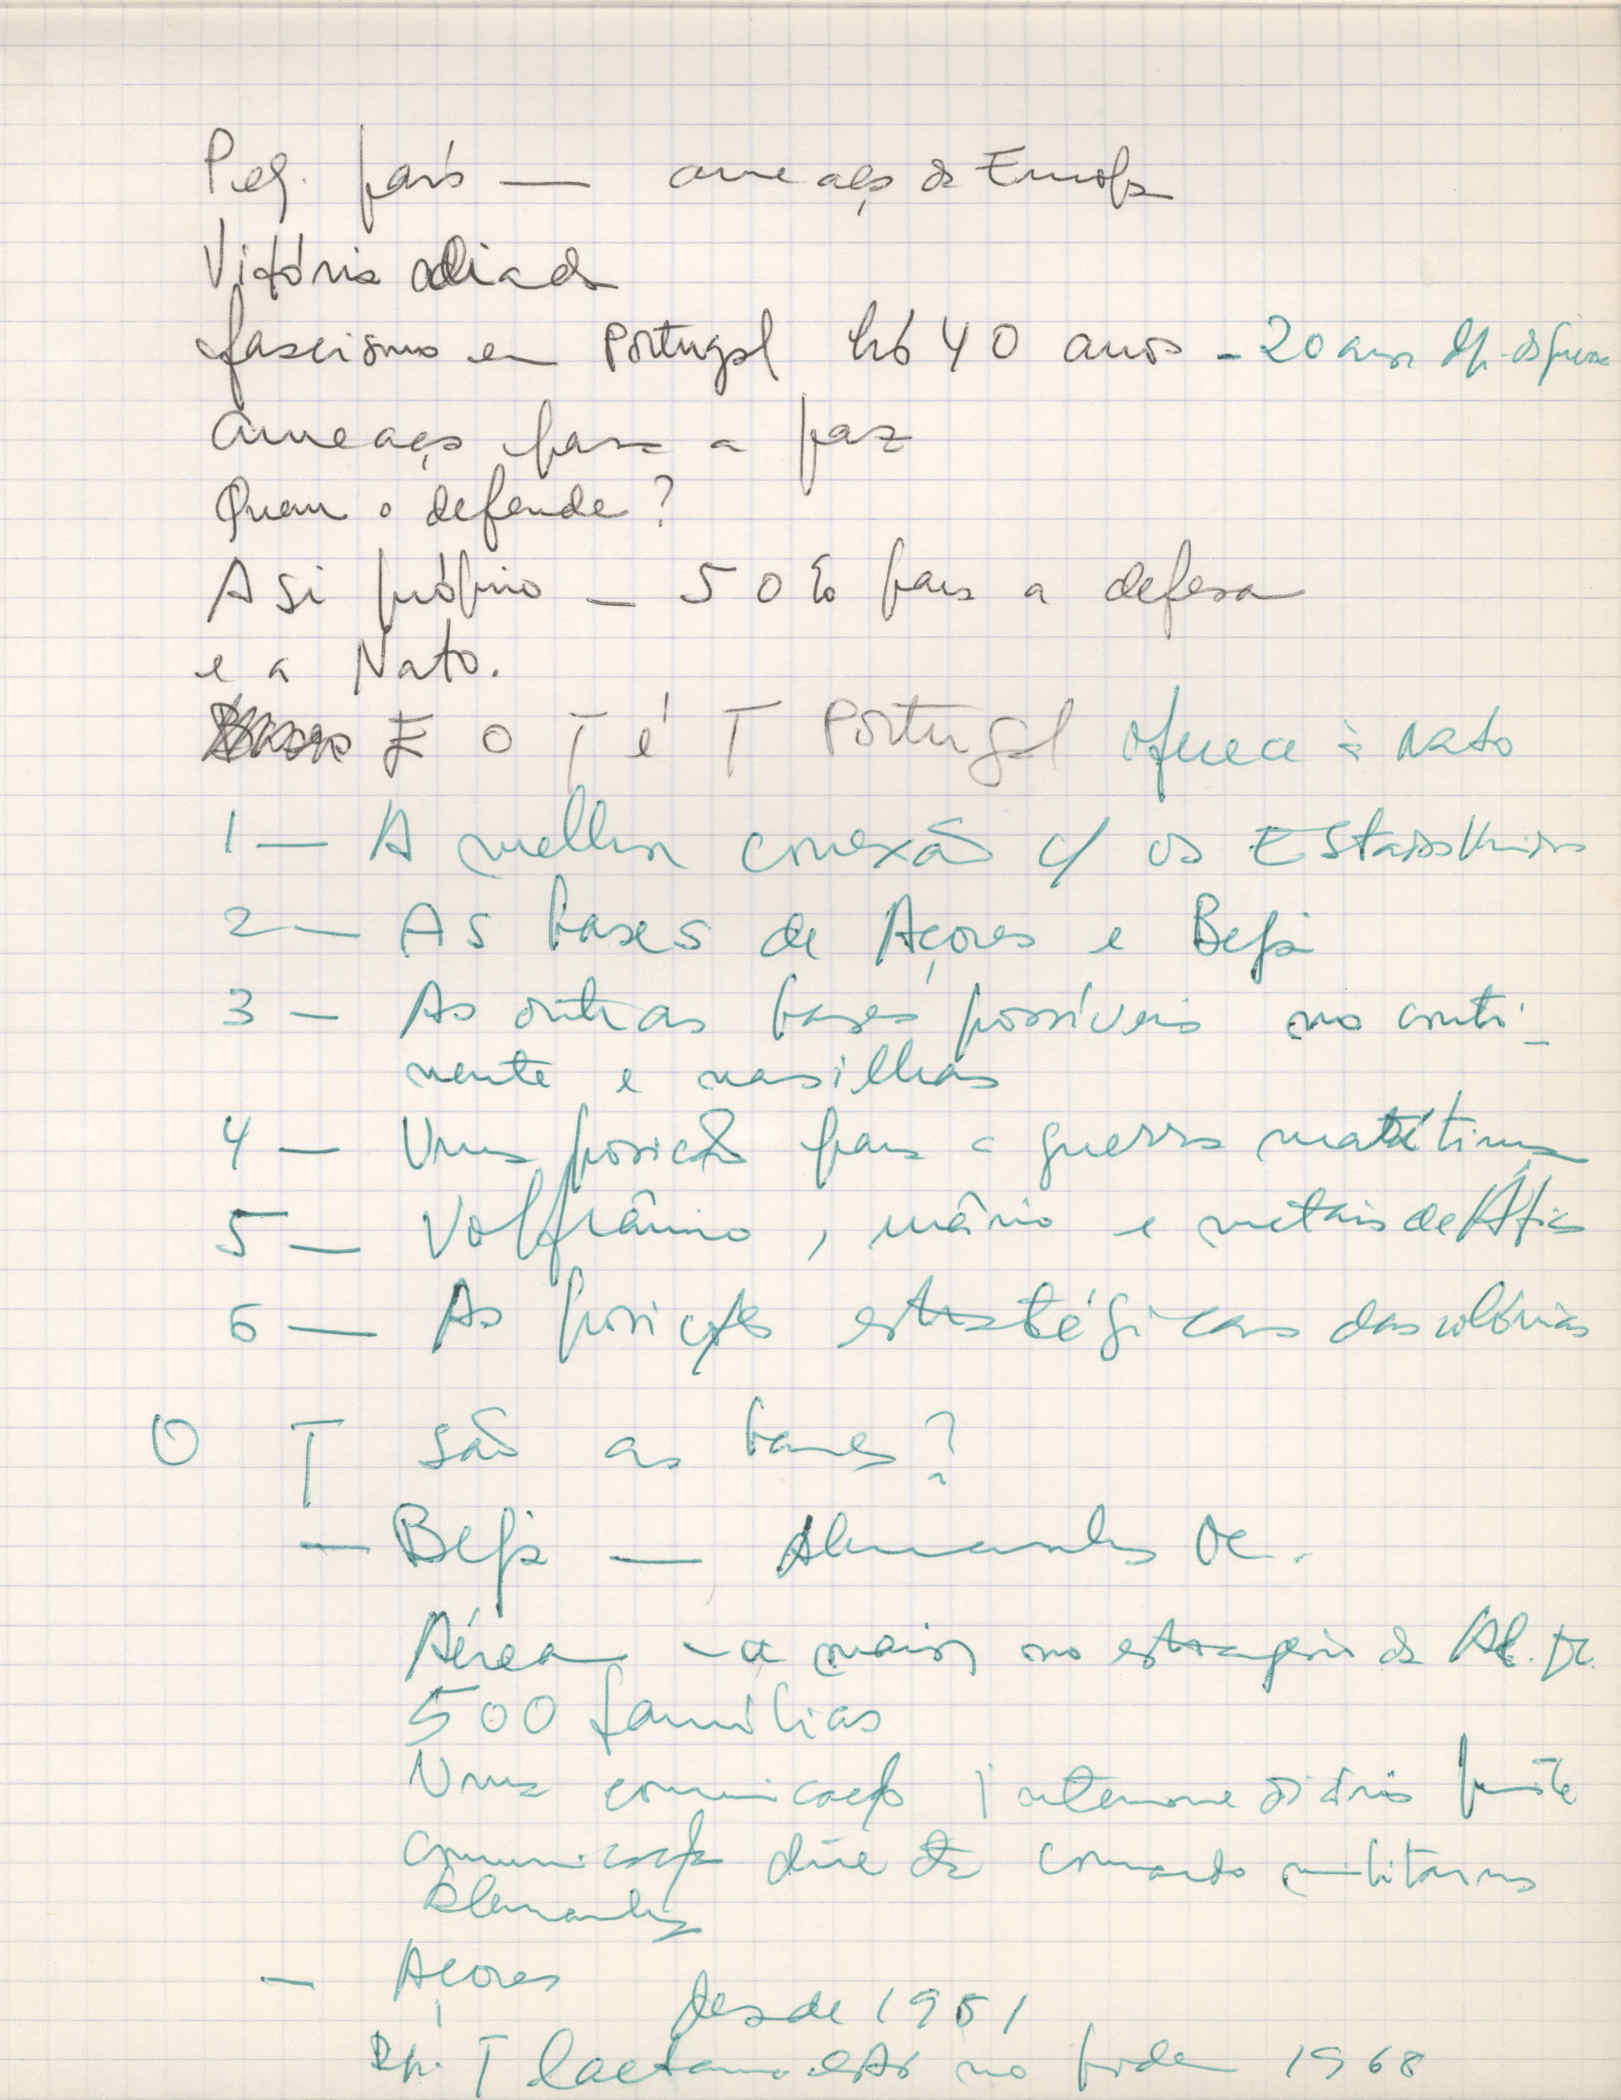 Peq. país — ameaça da Europa
Vitória aliada
fascismo em Portugal há 40 anos - 20 anos dp. da guerra
Ameaça para a paz
Quem o defende?
A si próprio — 50% para a defesa
e a Nato.
E O T é T Portugal oferece à Nato
1 — A melhor conexão c/ os Estados Unidos
2 — As bases de Açores e Beja
3 — As outras bases possíveis no conti-
nente e nas ilhas
4 — Uma posição para a guerra marítima
5 — Volfrâmio, urânio e metais de África
6 — As posições estratégicas das colónias
O T são as bases?
— Beja — Alemanha Oc.
Aérea - a maior no estrangeiro da Al. Oc.
500 famílias
Uma comunicação intermediária
comunicação directa comando militar
Alemanha
— Açores desde 1951
T Caetano está no poder 1968